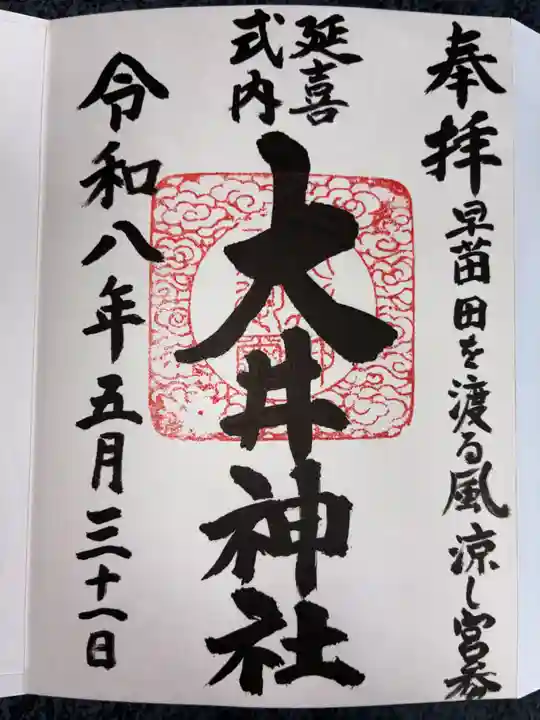 奉拝
早苗田を渡る風涼し宮参
延喜
式内
大井神社
令和八年五月三十一日